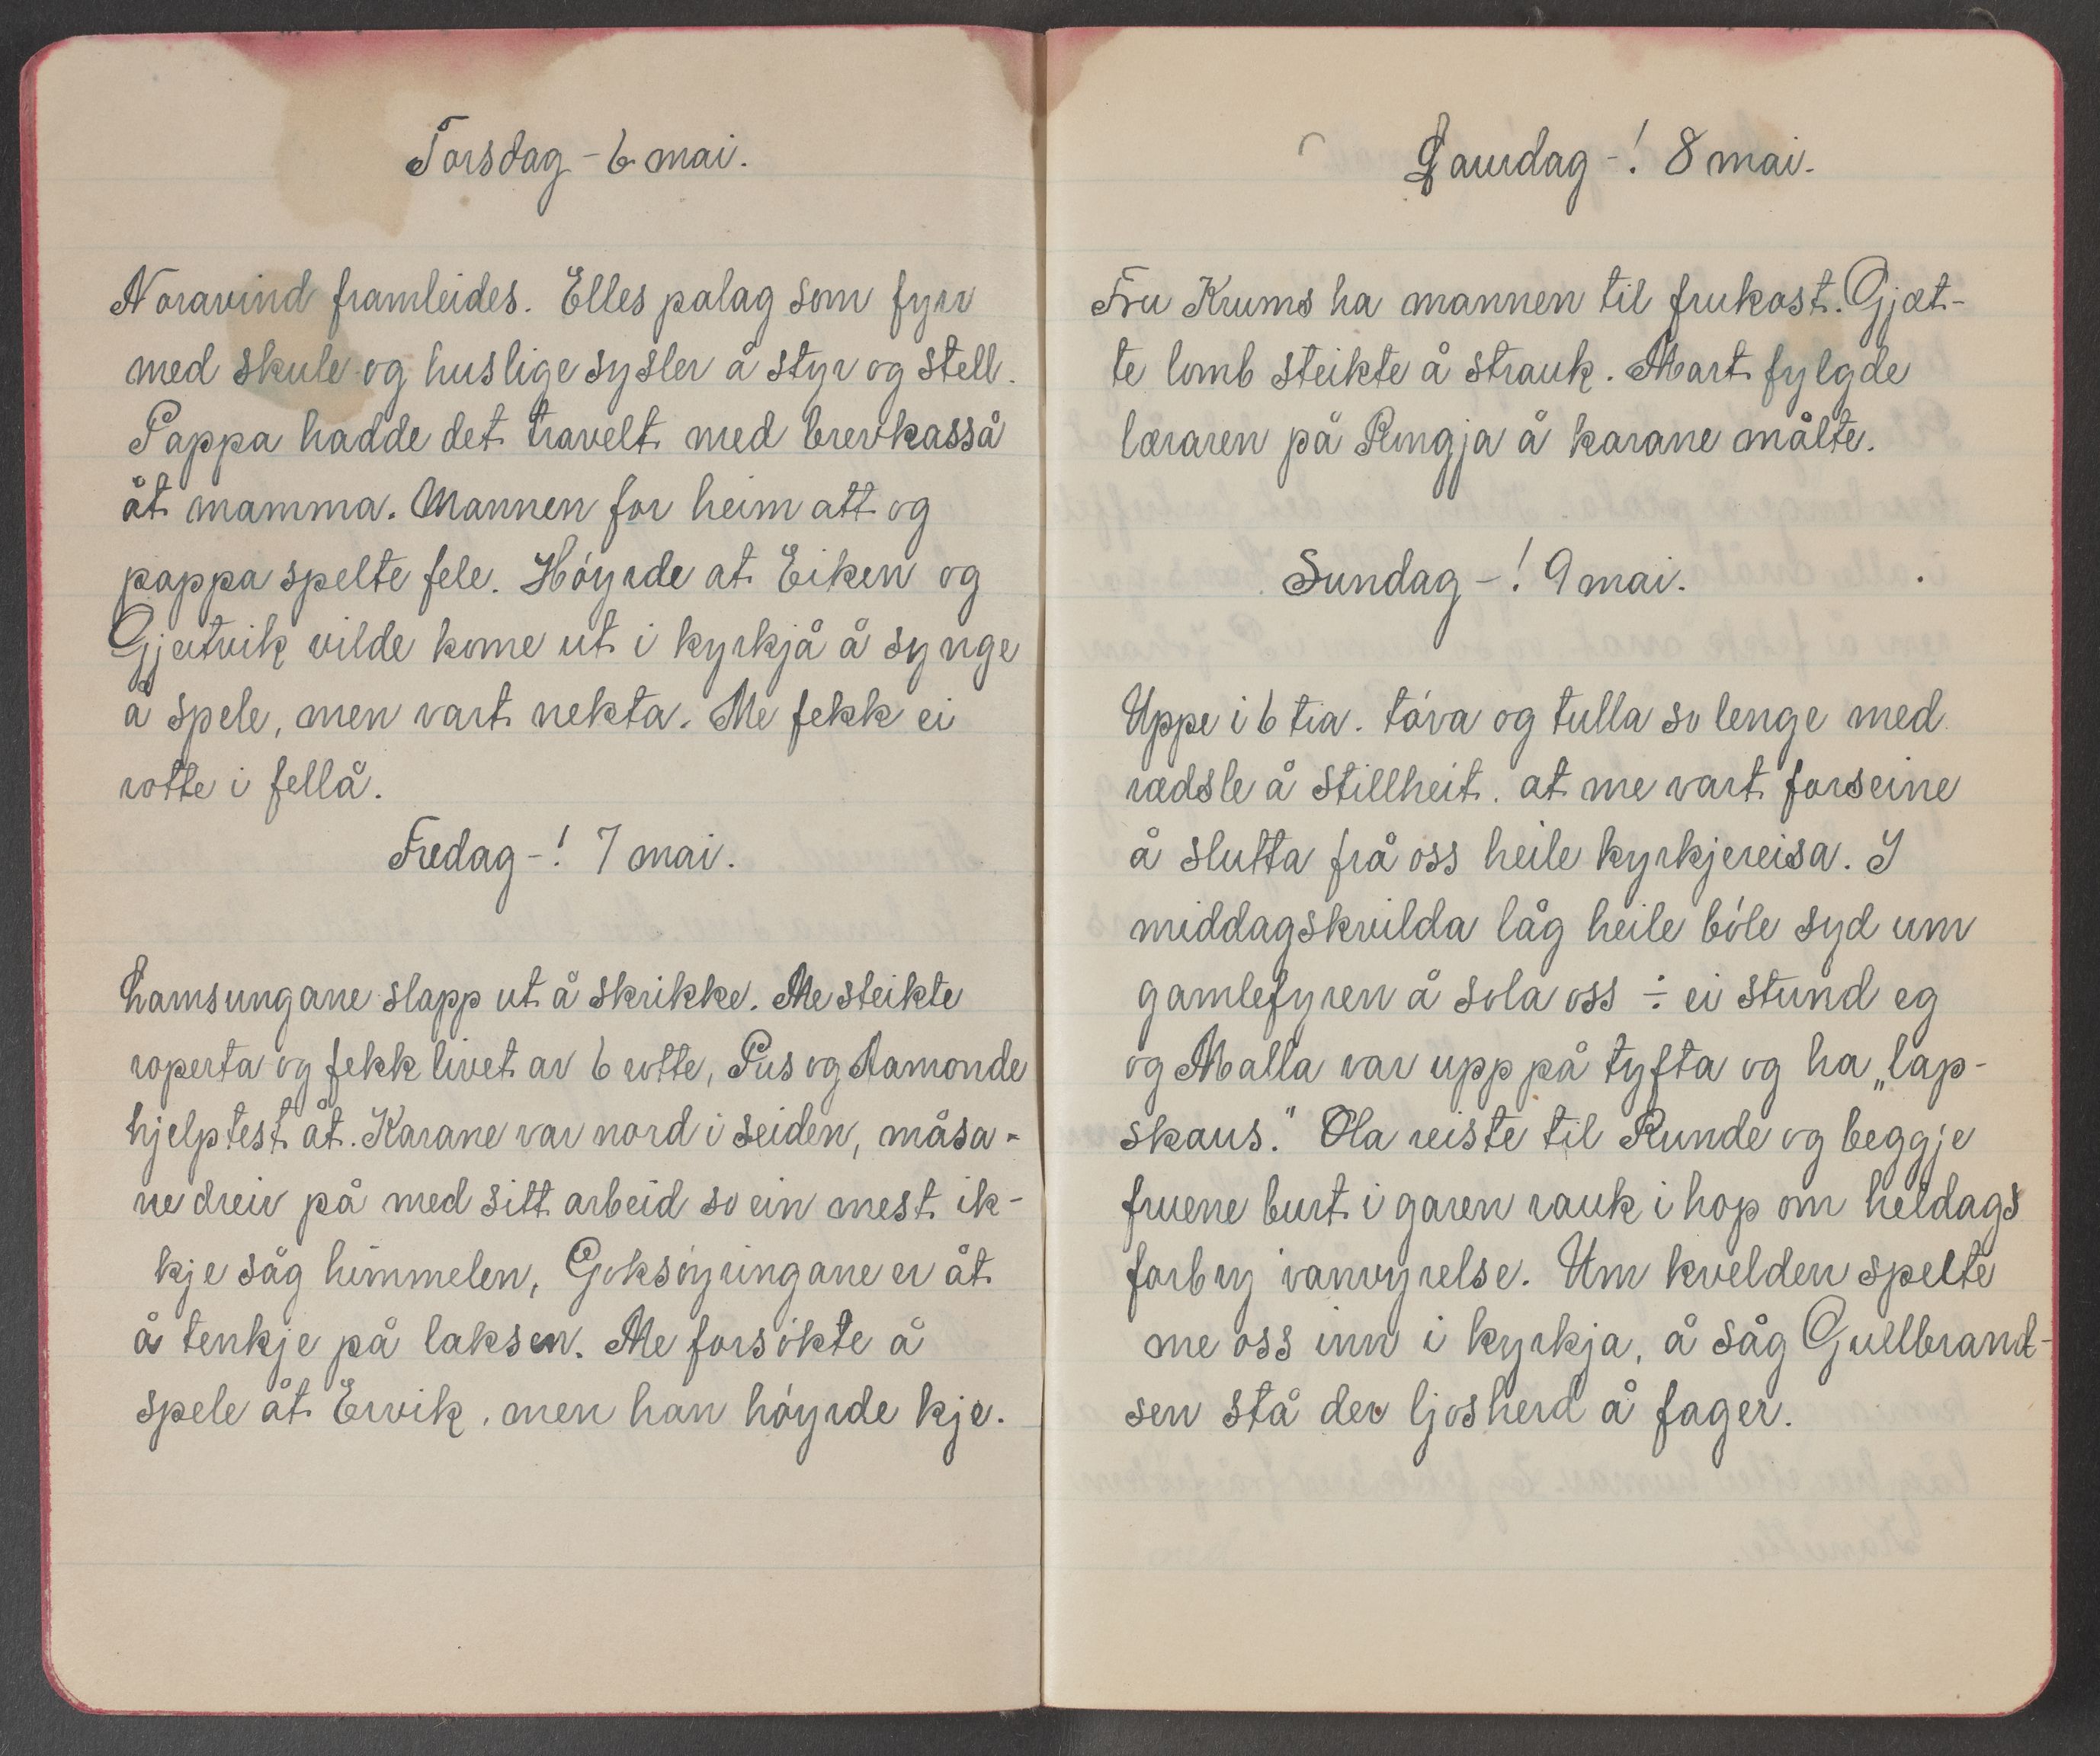 Torsdag - 6 mai.
Noravind framleides. Elles palag som fyrr
med skule og huslige sysler å styr og stell.
Pappa hadde det travelt med brevkasså
åt mamma. Mannen for heim att og
pappa spelte fele. Höyrde at Eiken og
Gjætvik vilde kome ut i kyrkjå å synge
å spele, men vart nekta. Me fekk ei
rotte i fellå.
Fredag -! 7 mai.
Lamsungane slapp ut å skrikke. Me steikte
roperta og fekk livet av 6 rotte, Pus og Ramonde
hjelptest åt. Karane var nord i seiden, måsa-
ne dreiv på med sitt arbeid so ein mest ik-
kje såg himmelen, Goksöyringane er åt
å tenkje på laksen. Me forsökte å
spele åt Ervik, men han höyrde kje.
Laurdag -! 8 mai.
Fru Krums ha mannen til frukost. Gjæt-
te lomb steikte å strauk. Mart fylgde
læraren på Ringja å karane målte.
Sundag -! 9 mai.
Uppe i 6 tia. töva og tulla so lenge med
rædsle å stillheit. at me vart forseine
å slutta frå oss heile kyrkjereisa. I
middagskvilda låg heile böle syd um
gamlefyren å sola oss ÷ ei stund eg
og Malla var upp på tyfta og ha „lap-
skaus." Ola reiste til Runde og beggje
fruene burt i garen rauk i hop om heldags
forbry ivanvyrelse. Um kvelden spelte
me oss inn i kyrkja, å såg Gullbrand-
sen stå der ljosherd å fager.